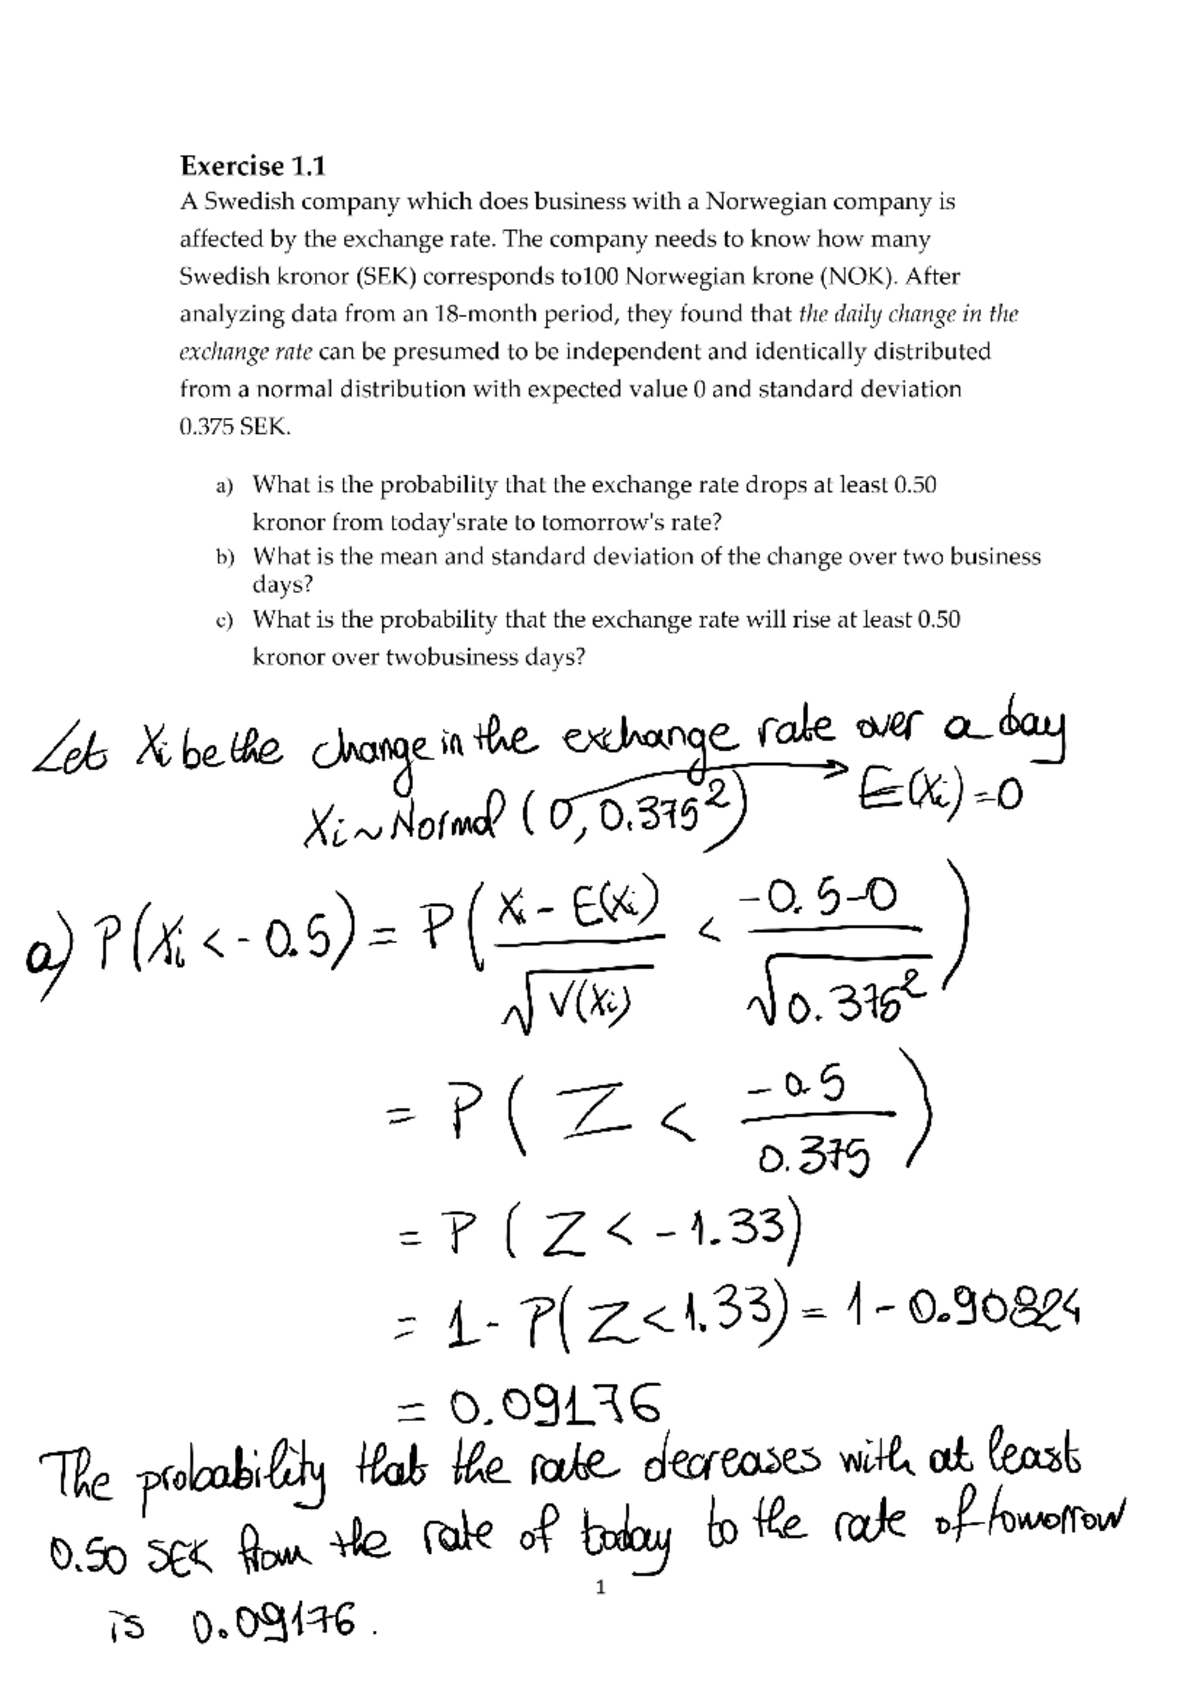 Exercise 1.1
A Swedish company which does business with a Norwegian company is
affected by the exchange rate. The company needs to know how many
Swedish kronor (SEK) corresponds to100 Norwegian krone (NOK). After
analyzing data from an 18-month period, they found that the daily change in the
exchange rate can be presumed to be independent and identically distributed
from a normal distribution with expected value 0 and standard deviation
0.375 SEK.
a) What is the probability that the exchange rate drops at least 0.50
kronor from today'srate to tomorrow's rate?
b) What is the mean and standard deviation of the change over two business
days?
c) What is the probability that the exchange rate will rise at least 0.50
kronor over twobusiness days?
Let Xi be the change in the exchange rate over a day
Xi ~ Normal (0, 0.375²) → E(Xi) = 0
a) P(Xi < -0.5) = P( (Xi - E(Xi)) / √V(Xi) < (-0.5-0) / √0.375² )
= P( Z < -0.5 / 0.375 )
= P ( Z < -1.33)
= 1 - P( Z < 1.33) = 1 - 0.90824
= 0.09176
The probability that the rate decreases with at least
0.50 SEK from the rate of today to the rate of tomorrow
1
is 0.09176.